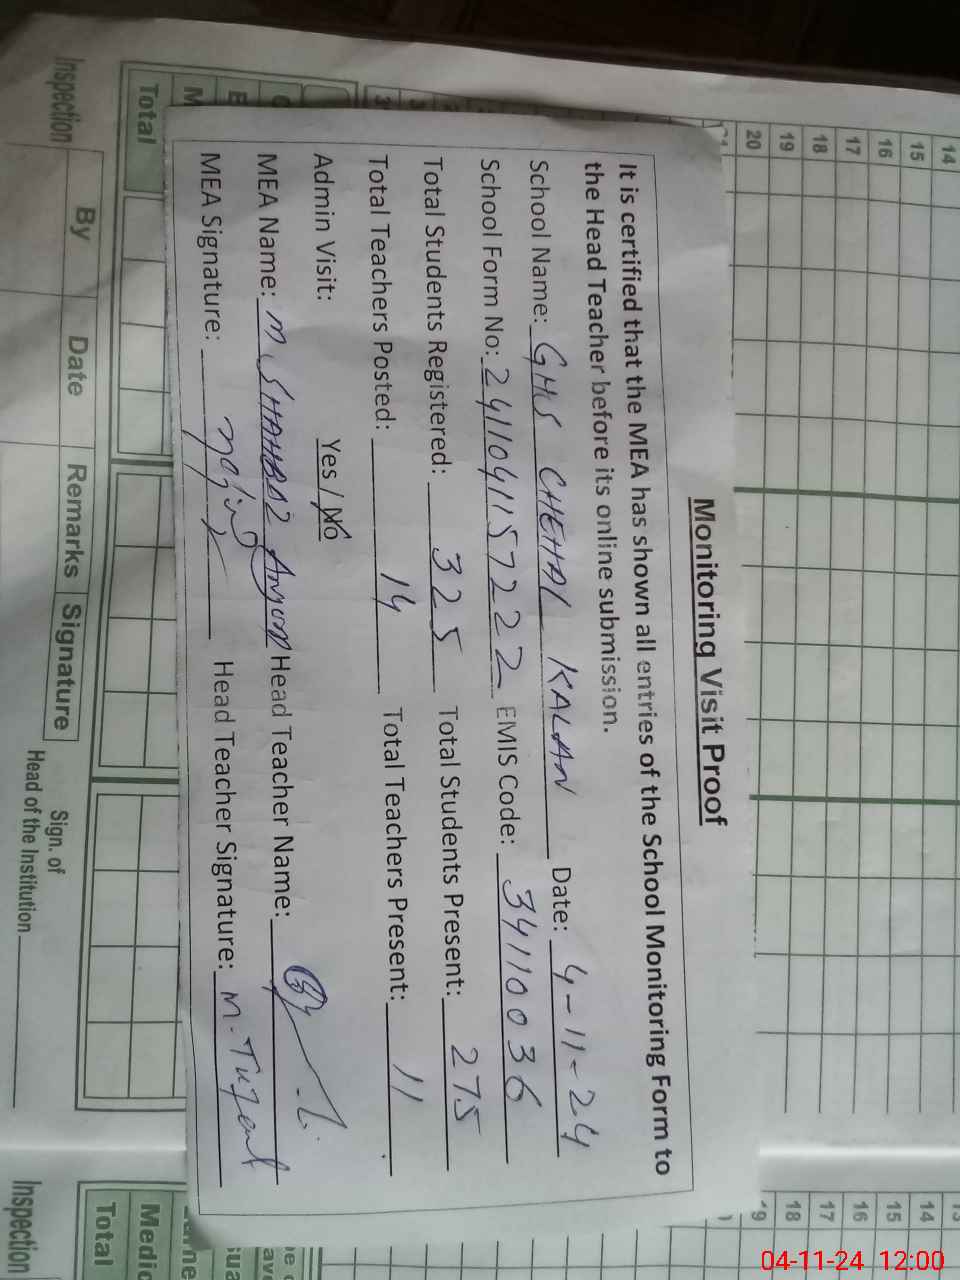 Monitoring Visit Proof
It is certified that the MEA has shown all entries of the School Monitoring Form to
the Head Teacher before its online submission.
School Name: GHS CHEHAL KALAN Date: 4-11-24
School Form No: 241104157222 EMIS Code: 34110036
Total Students Registered: 325 Total Students Present: 275
Total Teachers Posted: 14 Total Teachers Present: 11
Admin Visit: Yes / No
MEA Name: M. SHAHBAZ Head Teacher Name:
MEA Signature: Head Teacher Signature: M.
14
15
16
17
18
19
20
Total
Inspection
By
Date
Remarks
Signature
Sign. of
Head of the Institution
14
15
16
17
18
19
Total
Medic
Inspection
04-11-24 12:00